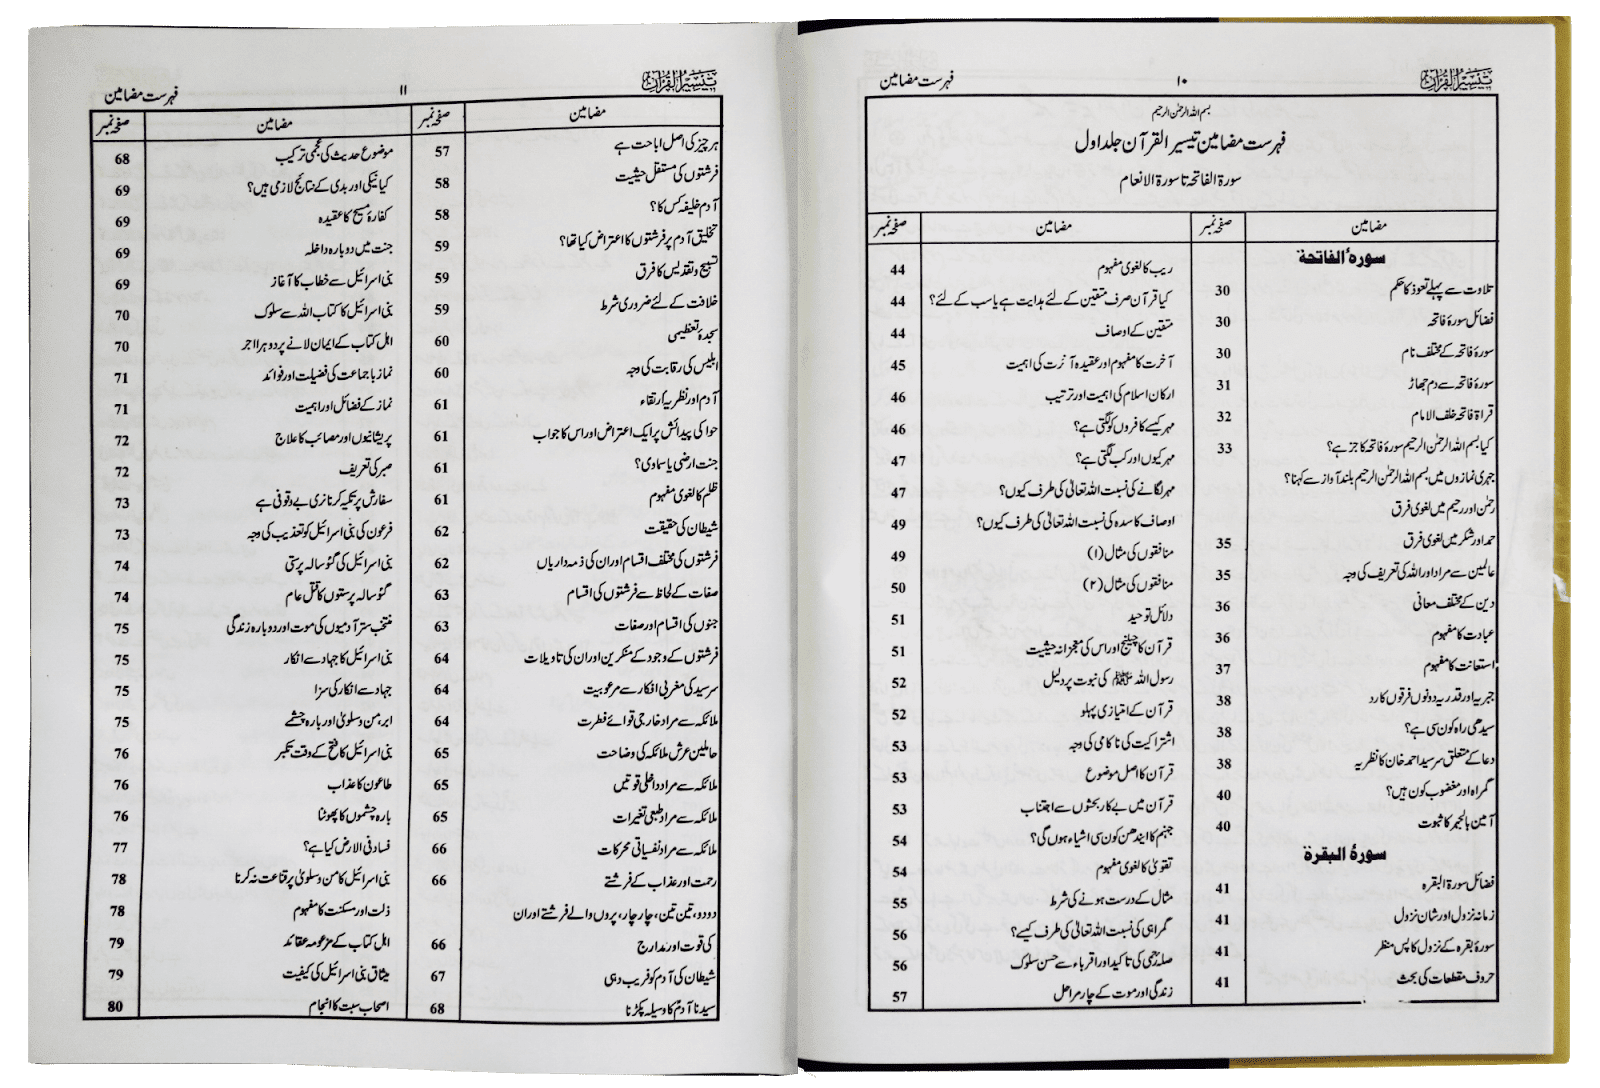 تیسیر القرآن ۱۰ فہرست مضامین
بسم اللہ الرحمٰن الرحیم
فہرست مضامین تیسیر القرآن جلد اول
سورۃ الفاتحہ تا سورۃ الانعام
مضامین صفحہ نمبر
سورۃ الفاتحة
تلاوت سے پہلے تعوذ کا حکم 30
فضائل سورۃ فاتحہ 30
سورۃ فاتحہ کے مختلف نام 30
سورۃ فاتحہ سے دم جھاڑ 31
قراۃ فاتحہ خلف الامام 32
کیا بسم اللہ الرحمٰن الرحیم سورۃ فاتحہ کا جز ہے؟ 33
جہری نمازوں میں بسم اللہ الرحمٰن الرحیم بلند آواز سے کہنا؟
رحمٰن اور رحیم میں لغوی فرق
حمد اور شکر میں لغوی فرق 35
عالمین سے مراد اور اللہ کی تعریف کی وجہ 35
دین کے مختلف معانی 36
عبادت کا مفہوم 36
استعانت کا مفہوم 37
جبریہ اور قدریہ دونوں فرقوں کا رد 38
سیدھی راہ کون سی ہے؟ 38
دعا کے متعلق سرسید احمد خان کا نظریہ 38
گمراہ اور مغضوب کون ہیں؟ 40
آمین بالجہر کا ثبوت 40
سورۃ البقرة
فضائل سورۃ البقرہ 41
زمانہ نزول اور شان نزول 41
سورۃ بقرہ کے نزول کا پس منظر 41
حروف مقطعات کی بحث 41
مضامین صفحہ نمبر
ریب کا لغوی مفہوم 44
کیا قرآن صرف متقین کے لئے ہدایت ہے یا سب کے لئے؟ 44
متقین کے اوصاف 44
آخرت کا مفہوم اور عقیدہ آخرت کی اہمیت 45
ارکان اسلام کی اہمیت اور ترتیب 46
مہر کیسے کافروں کو لگتی ہے؟ 46
مہر کیوں اور کب لگتی ہے؟ 47
مہر لگانے کی نسبت اللہ تعالیٰ کی طرف کیوں؟ 47
اوصاف کاسدہ کی نسبت اللہ تعالیٰ کی طرف کیوں؟ 49
منافقوں کی مثال (۱) 49
منافقوں کی مثال (۲) 50
دلائل توحید 51
قرآن کا چیلنج اور اس کی معجزانہ حیثیت 51
رسول اللہ ﷺ کی نبوت پر دلیل 52
قرآن کے امتیازی پہلو 52
اشتراکیت کی ناکامی کی وجہ 53
قرآن کا اصل موضوع 53
قرآن میں بے کار بحثوں سے اجتناب 53
جہنم کا ایندھن کون سی اشیاء ہوں گی؟ 54
تقویٰ کا لغوی مفہوم 54
مثال کے درست ہونے کی شرط 55
گمراہی کی نسبت اللہ تعالیٰ کی طرف کیسے؟ 56
صلہ رحمی کی تاکید اور اقرباء سے حسن سلوک 56
زندگی اور موت کے چار مراحل 57
تیسیر القرآن ۱۱ فہرست مضامین
مضامین صفحہ نمبر
ہر چیز کی اصل اباحت ہے 57
فرشتوں کی مستقل حیثیت 58
آدم خلیفہ کس کا؟ 58
تخلیق آدم پر فرشتوں کا اعتراض کیا تھا؟ 59
تسبیح و تقدیس کا فرق 59
خلافت کے لئے ضروری شرط 59
سجدہ تعظیمی 60
ابلیس کی رقابت کی وجہ 60
آدم اور نظریۂ ارتقاء 61
حوا کی پیدائش پر ایک اعتراض اور اس کا جواب 61
جنت ارضی یا سماوی؟ 61
ظلم کا لغوی مفہوم 61
شیطان کی حقیقت 62
فرشتوں کی مختلف اقسام اور ان کی ذمہ داریاں 62
صفات کے لحاظ سے فرشتوں کی اقسام 63
جنوں کی اقسام اور صفات 63
فرشتوں کے وجود کے منکرین اور ان کی تاویلات 64
سرسید کی مغربی افکار سے مرعوبیت 64
ملائکہ سے مراد خارجی قوائے فطرت 64
حاملین عرش ملائکہ کی وضاحت 65
ملائکہ سے مراد داخلی قوتیں 65
ملائکہ سے مراد طبعی تغیرات 65
ملائکہ سے مراد نفسیاتی محرکات 66
رحمت اور عذاب کے فرشتے 66
دو دو، تین تین، چار چار، پروں والے فرشتے اور ان
کی قوت اور مدارج 66
شیطان کی آدم کو فریب دہی 67
سیدنا آدم کا وسیلہ پکڑنا 68
مضامین صفحہ نمبر
موضوع حدیث کی عجمی ترکیب 68
کیا نیکی اور بدی کے نتائج لازمی ہیں؟ 69
کفارۂ مسیح کا عقیدہ 69
جنت میں دوبارہ داخلہ 69
بنی اسرائیل سے خطاب کا آغاز 69
بنی اسرائیل کا کتاب اللہ سے سلوک 70
اہل کتاب کے ایمان لانے پر دوہرا اجر 70
نماز باجماعت کی فضیلت اور فوائد 71
نماز کے فضائل اور اہمیت 71
پریشانیوں اور مصائب کا علاج 72
صبر کی تعریف 72
سفارش پر تکیہ کرنا نری بے وقوفی ہے 73
فرعون کی بنی اسرائیل کو تعذیب کی وجہ 73
بنی اسرائیل کی گئو سالہ پرستی 74
گئو سالہ پرستوں کا قتل عام 74
منتخب ستر آدمیوں کی موت اور دوبارہ زندگی 75
بنی اسرائیل کا جہاد سے انکار 75
جہاد سے انکار کی سزا 75
ابر، من و سلویٰ اور بارہ چشمے 75
بنی اسرائیل کا فتح کے وقت تکبر 76
طاعون کا عذاب 76
بارہ چشموں کا پھوٹنا 76
فساد فی الارض کیا ہے؟ 77
بنی اسرائیل کا من و سلویٰ پر قناعت نہ کرنا 78
ذلت اور مسکنت کا مفہوم 78
اہل کتاب کے مزعومہ عقائد 79
میثاق بنی اسرائیل کی کیفیت 79
اصحاب سبت کا انجام 80